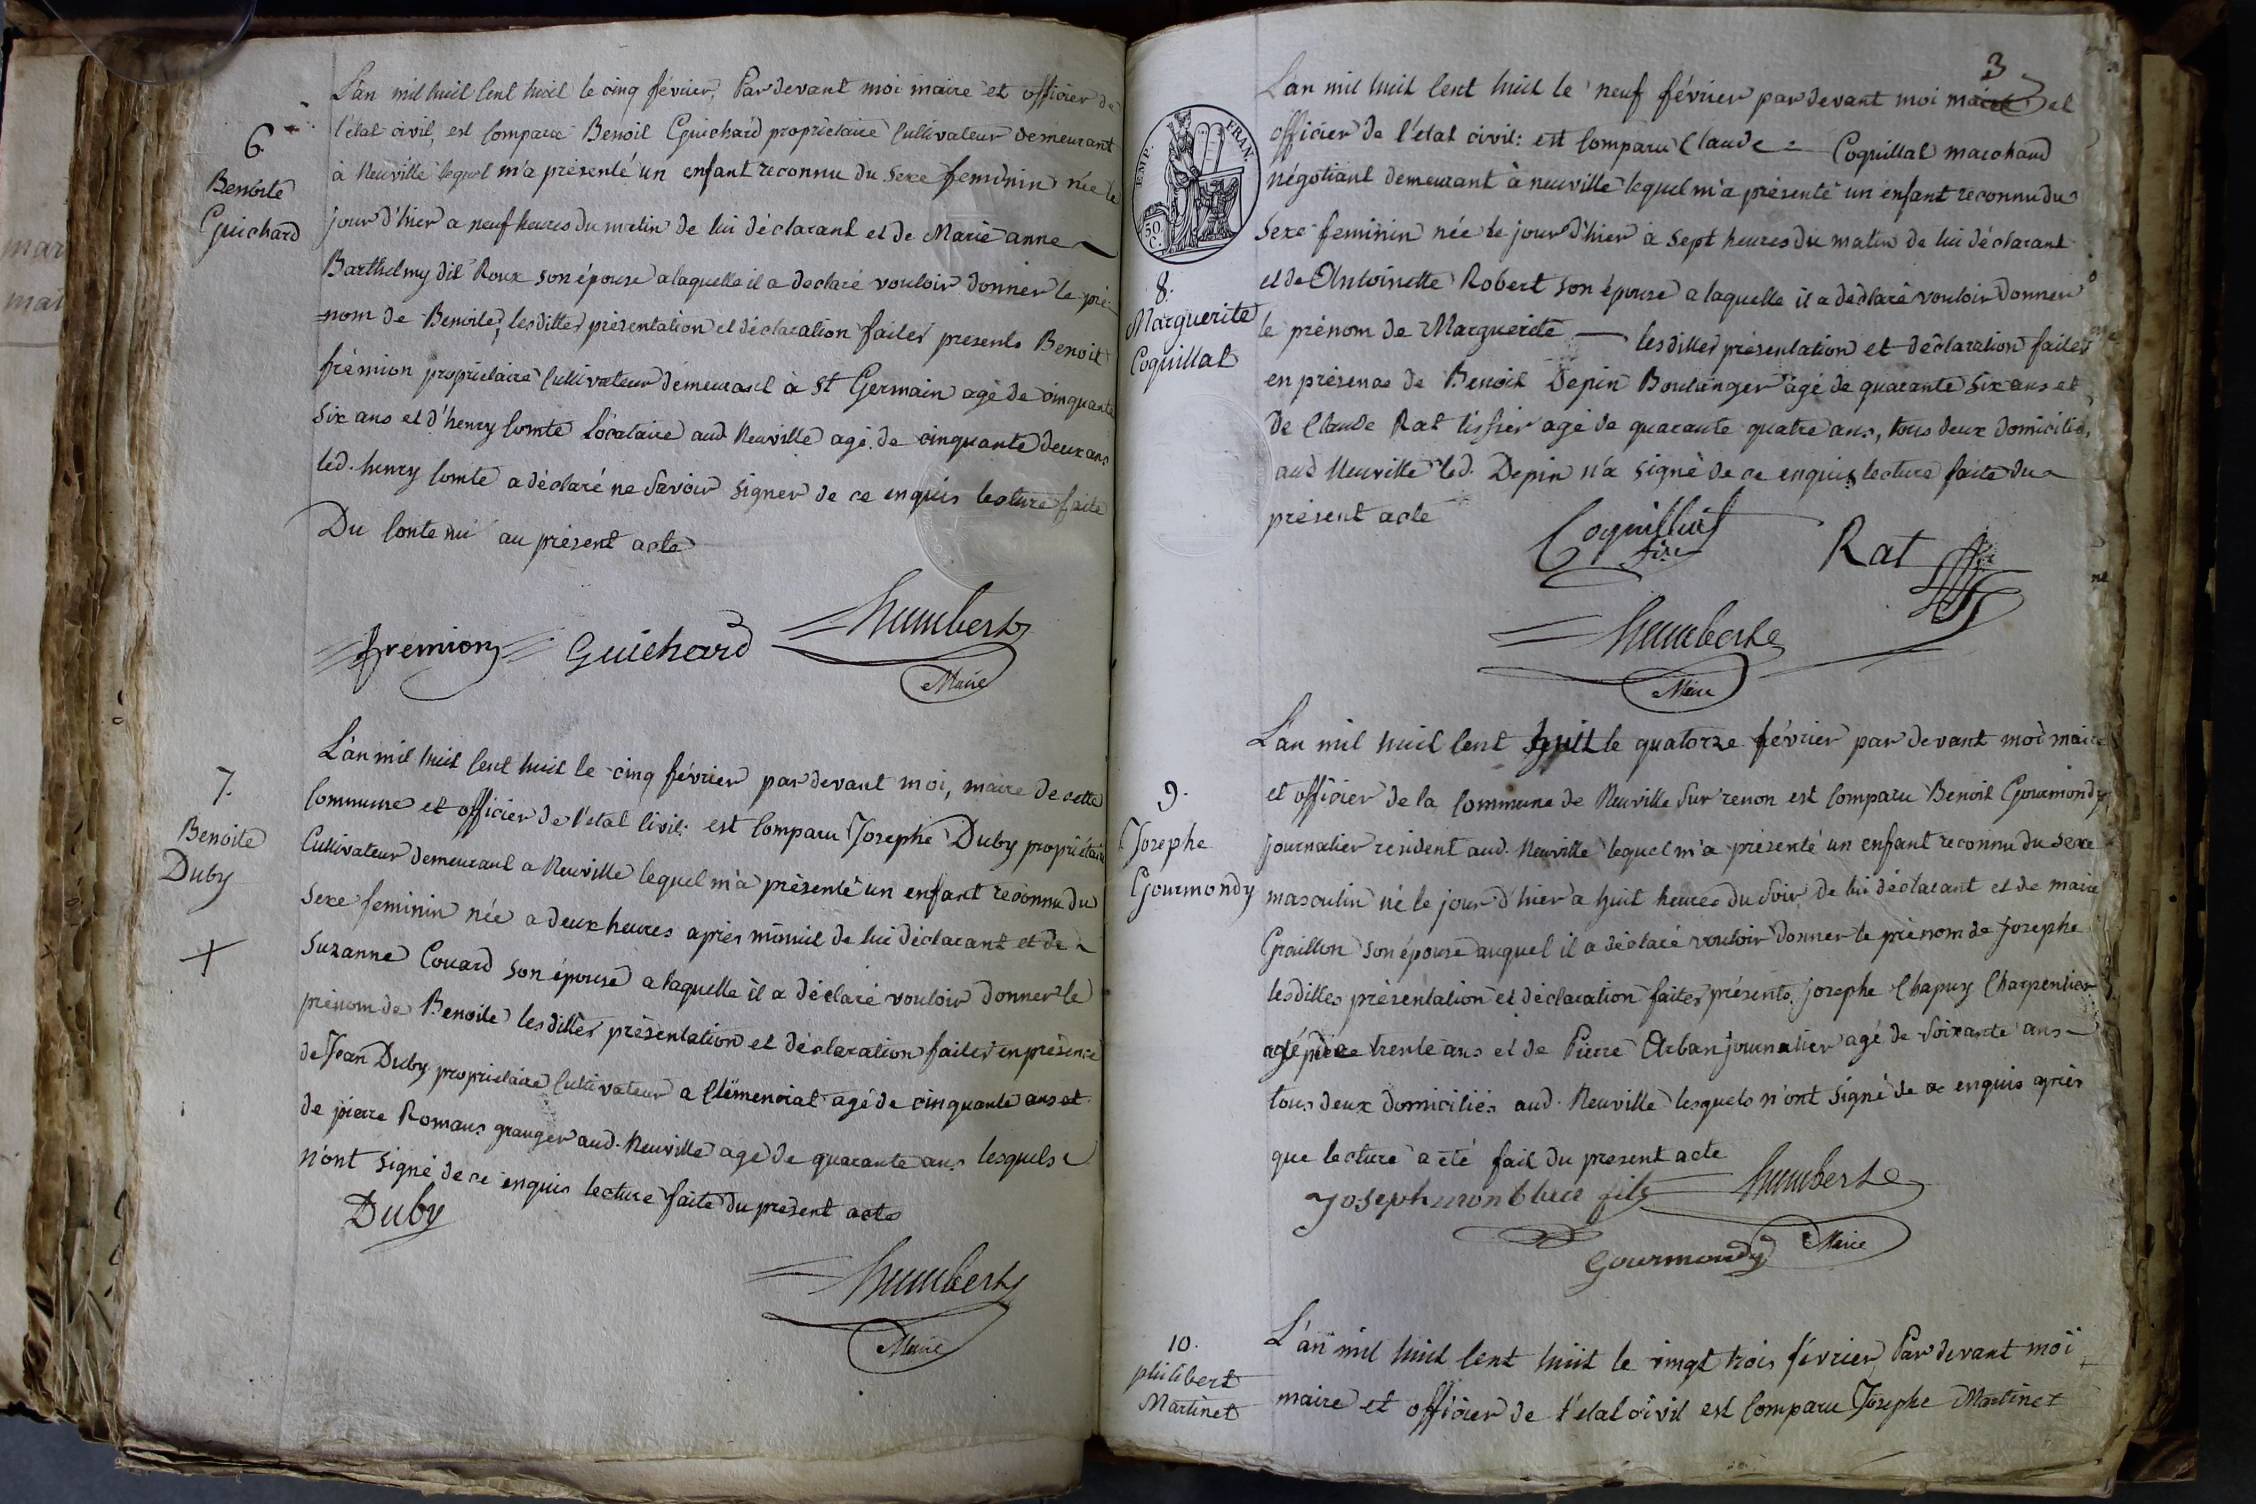 L'an mil huit cent huit le cinq février, Par devant moi maire et officier de
l'état civil, est comparu Benoit Guichard propriétaire cultivateur demeurant
6.
Benoite
Guichard
à Neuville lequel m'a présenté un enfant reconnu du sexe feminin née le
jour d'hier a neuf heures du matin de lui déclarant et de Marie anne
Barthelmy dit Roux son épouse a laquelle il a declaré vouloir donner le pré-
=nom de Benoite, lesdittes présentation et déclaration faites presents Benoit
frémion propriétaire cultivateur demeurant à St Germain agé de cinquante
six ans et d'henry comte locataire aud Neuville agé de cinquante deux ans
led. henry comte a déclaré ne savoir signer de ce enquis lecture faite
Du contenu au présent acte
fremion Guichard humbert
Maire
L'an mil huit cent huit le cinq février par devant moi, maire de cette
7.
Benoite
Duby
+
commune et officier de l'état civil: est comparu Josephe Duby propriétaire
Cultivateur demeurant a Neuville lequel m'a présenté un enfant reconnu du
sexe feminin née a deux heures après minuit de lui déclarant et de
Suzanne Couard son épouse a laquelle il a déclaré vouloir donner le
prénom de Benoite lesdittes présentation et déclaration faites en présence
de Jean Duby propriétaire cultivateur a Clémenciat agé de cinquante ans et
de pierre Romans granger aud. Neuville agé de quarante ans lesquels
n'ont signé de ce enquis lecture faite du présent acte
Duby
humbert
Maire
3
EMP. FRAN.
50 C.
L'an mil huit cent huit le neuf février par devant moi maire et
officier de l'état civil: est comparu Claude = Coquillat marchand
négotiant demeurant à neuville lequel m'a présenté un enfant reconnu du
sexe feminin née le jour d'hier à sept heures du matin de lui déclarant
8.
Marguerite
Coquillat
et de Antoinette Robert son épouse a laquelle il a déclaré vouloir donner
le prénom de Marguerite — lesdittes présentation et déclaration faites
en présence de Benoit Depin Boulanger agé de quarante six ans et
de Claude Rat tissier agé de quarante quatre ans, tous deux domiciliés
aud Neuville led. Depin n'a signé de ce enquis lecture faite du
présent acte
Coquilliat Rat
humbert
Maire
L'an mil huit cent huit le quatorze février par devant moi maire
9.
Josephe
Gourmondy
et officier de la commune de Neuville sur renon est comparu Benoit Gourmondy
journalier resident aud. Neuville lequel m'a présenté un enfant reconnu du sexe
masculin né le jour d'hier a huit heures du soir de lui déclarant et de marie
Graillon son épouse auquel il a déclaré vouloir donner le prénom de Josephe
lesdittes présentation et déclaration faites présents josephe Chapuy Charpentier
agé trente ans et de Pierre Arban journalier agé de soixante ans
tous deux domiciliés aud. Neuville lesquels n'ont signé de ce enquis après
que lecture a été fait du present acte
Joseph monblanc fils humbert
Maire
Gourmondy
10.
philibert
Martinet
L'an mil huit cent huit le vingt trois février Par devant moi
maire et officier de l'état civil est comparu Josephe Martinet